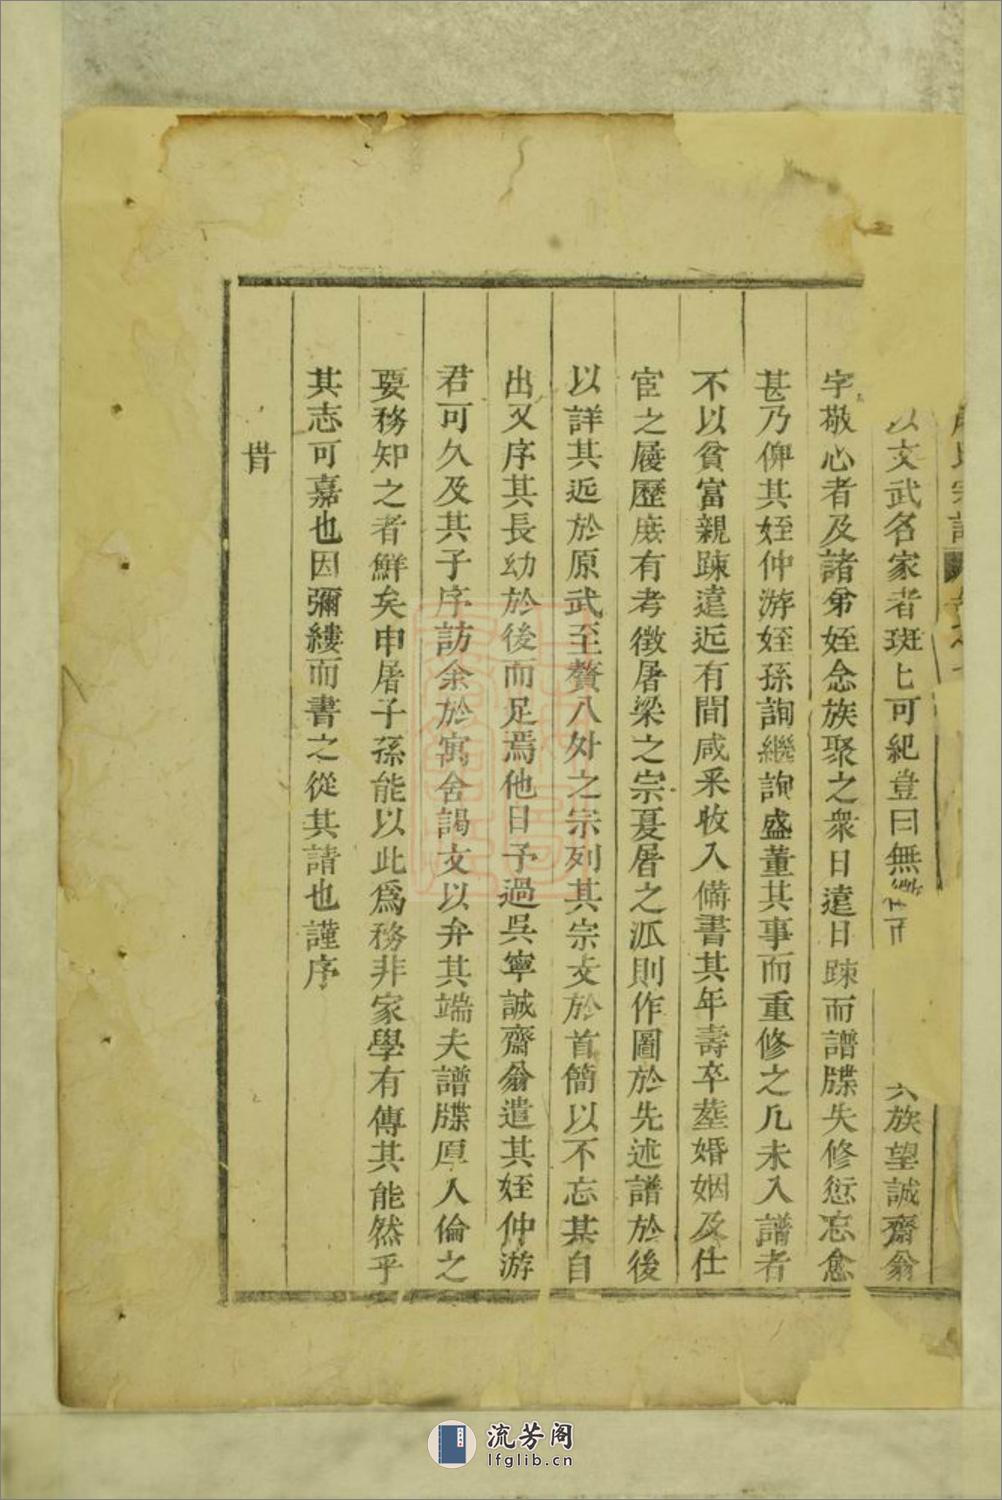 以文武名家者班匕可紀豈曰無
族望誠齋翁
字敬心者及諸弟姪念族聚之衆日遠日踈而譜牒失修愆忘愈
甚乃俾其姪仲游姪孫詢繼詢盛董其事而重修之凢未入譜者
不以貧富親踈遠近有間咸采收入備書其年壽卒塟婚姻及仕
宦之履歷庶有考徵屠梁之宗憂屠之派則作圖於先述譜於後
以詳其近於原武至贅八外之宗列其宗支於首簡以不忘其自
出又序其長幼於後而足焉他日予過吳寧誠齋翁遣其姪仲游
君可久及其子序訪余於寓舍謁文以弁其端夫譜牒厚人倫之
要務知之者鮮矣申屠子孫能以此爲務非家學有傳其能然乎
其志可嘉也因彌縷而書之從其請也謹序
旹
流芳阁
lfglib.cn